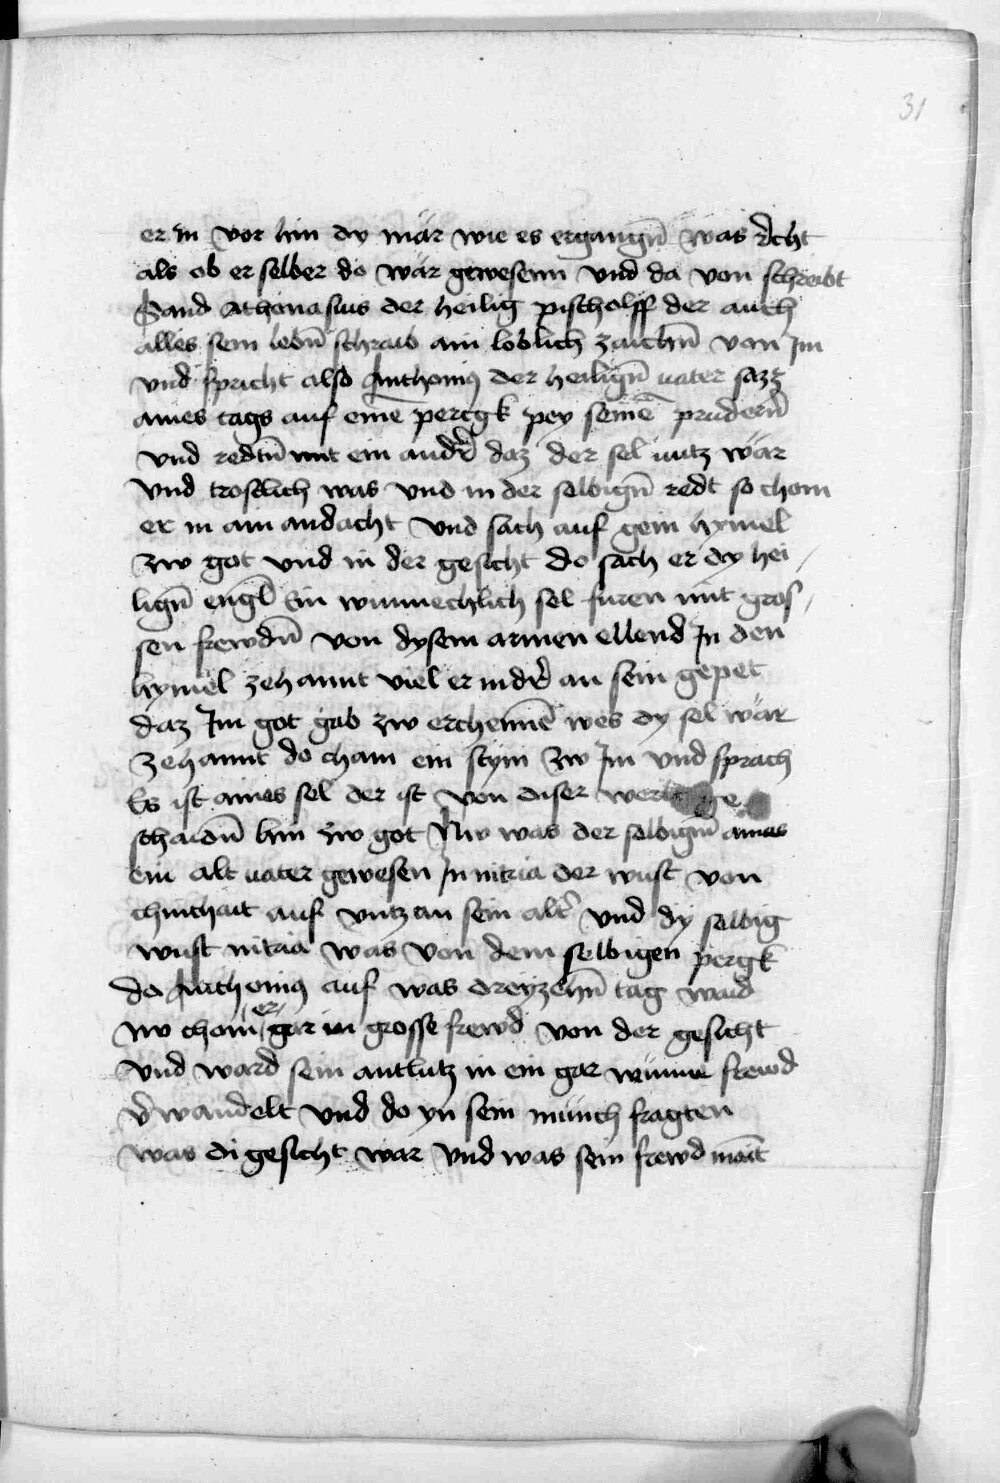 31
er in vor hin dy mär wie es ergangn̄ was r̄cht
als ob er selber do wär gewesenn vnd da von schreibt
Sand Athanasius der heilig pischolff der auch
alles sein lebn̄ schraib ain loblich zaichn̄ von Im
vnd spricht also Anthoniꝰ der heilign̄ uater sazz
aines tags auf eine̅ percgk pey seine̅ prudern̄
vnd redtn̄ mit ein andr̄ daz der sel nutz wär
vnd trostlich was vnd in der selbign̄ redt so chom
er in ain andacht vnd sach auf gein hymel
zw got vnd in der gesicht do sach er dy hei/
lign̄ engl̄ Ein wunnechlich sel furen mit gros/
sen frewdn̄ von dysem armen ellend In den
hymel zehannt viel er nidr̄ an sein gepet
daz Im got gab zw erchenne̅ wes dy sel wär
Zehannt do cham ein stym zw Im vnd sprach
Es ist aines sel der ist von diser werlt ge
schaidn̄ hin zw got Nw was der selbign̄ amas
ein alt uater gewesen In nitria der wust von
chinthait auf vntz an sein alt̄ vnd dy selbig
wust nitria was von dem selbigen pergk
do Anthoniꝰ auf was dreyzehn̄ tag waid
nw chom er gar in grosse frewd von der gesicht
vnd ward sein antlutz in ein gar wunne frewd
v̄wandelt vnd do yn sein münch fragten
was di gesicht wär vnd was sein frewd mai̅t